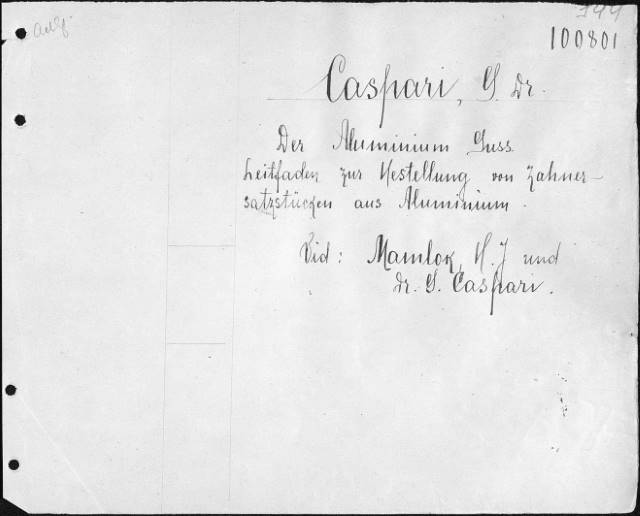 344
100801
Caspari, G. Dr.
Der Aluminium Guss
Leitfaden zur Hestellung von Zahner-
satzstücken aus Aluminium.
Vid: Mamlok, H. J und
Dr. G. Caspari.